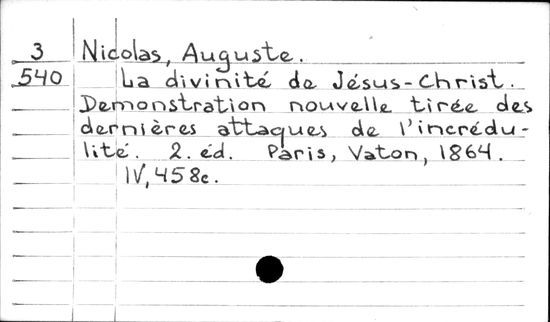 3 Nicolas, Auguste.
540 La divinité de Jésus-Christ.
Demonstration nouvelle tirée des
dernières attaques de l'incrédu-
lité. 2. éd. Paris, Vaton, 1864.
IV, 458c.